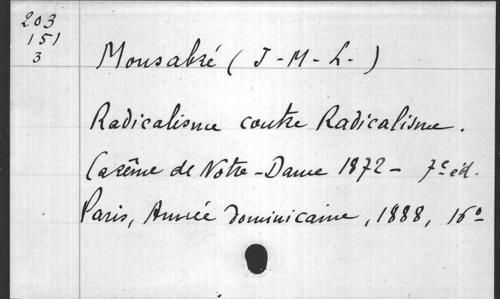 203
151
3
Monsabré (J-M-L-)
Radicalisme contre Radicalisme.
Carême de Notre-Dame 1872 - 7e éd.
Paris, Année Dominicaine, 1888, 16°